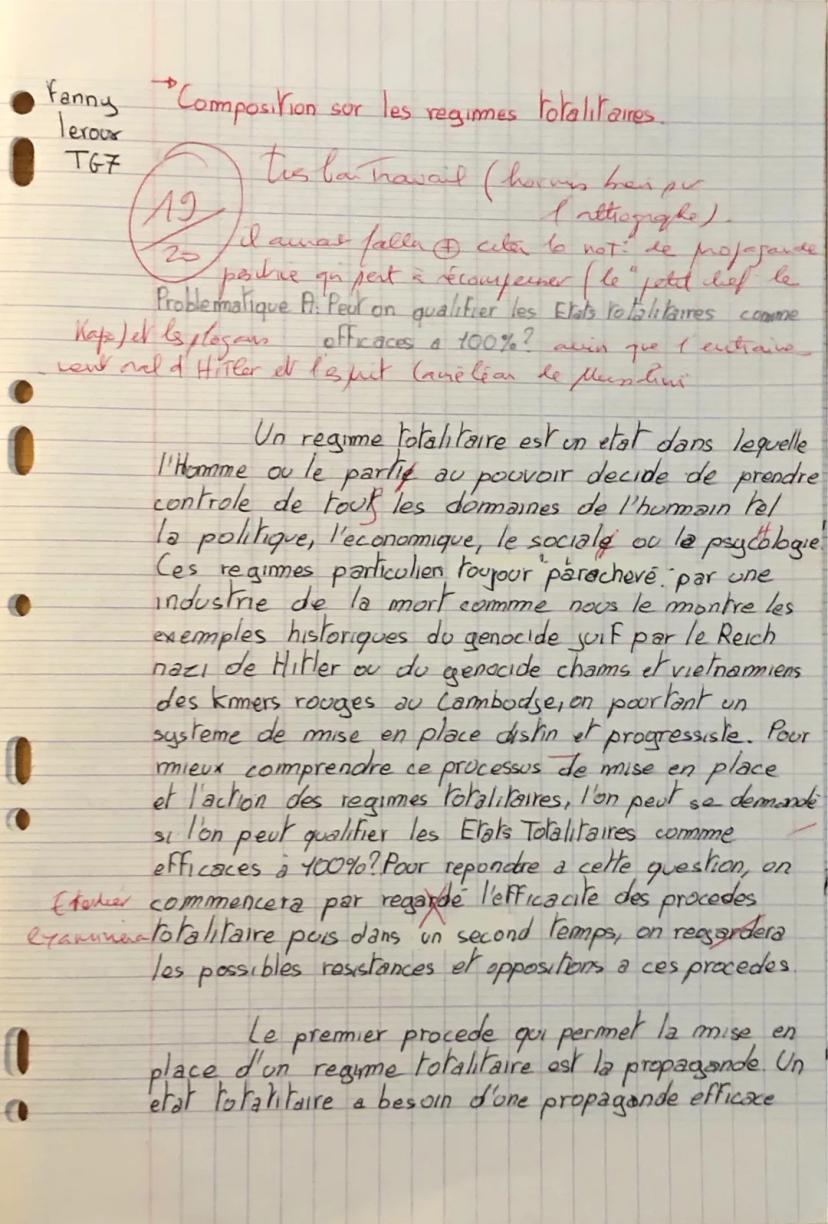 Fanny
leroux
TG7
→ Composition sur les regimes totalitaires.
19/20
Travail (hormis
il aurait fallu ⊕ citer la not° de propagande
positive qui sert à récompenser (le "petit chef" le
Problematique A: Peut on qualifier les Etats totalitaires comme
efficaces a 100%?
Kapo) et les slogans ainsi que l'entraine-
ment d'Hitler et de Mussolini
Un regime totalitaire est un etat dans lequelle
l'Homme ou le partie au pouvoir decide de prendre
controle de tout les domaines de l'humain tel
la politique, l'economique, le sociale ou la psycologie.
Ces regimes particulien toujour "parachevé" par une
industrie de la mort comme nous le montre les
exemples historiques du genocide juif par le Reich
nazi de Hitler ou du genocide chams et vietnamiens
des kmers rouges au Cambodge, on pourtant un
systeme de mise en place distin et progressiste. Pour
mieux comprendre ce processus de mise en place
et l'action des regimes totalitaires, l'on peut se demandé
si l'on peut qualifier les Etats Totalitaires comme
efficaces à 100%? Pour repondre a cette question, on
Etudier commencera par regardé l'efficacite des procedes
examinera totalitaire puis dans un second temps, on reegardera
les possibles resistances et oppositions a ces procedes.
Le premier procede qui permet la mise en
place d'un regime totalitaire est la propagande. Un
etat totalitaire a besoin d'une propagande efficace